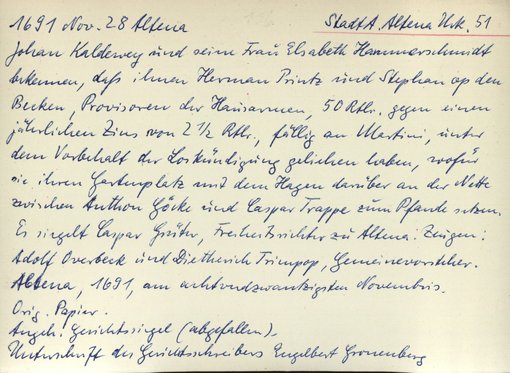 1691 Nov. 28 Altena StadtA. Altena Urk. 51
Johan Kaldewey und seine Frau Elsabeth Hammerschmidt
bekennen, daß ihnen Herman Printz und Stephan op den
Becken, Provisoren der Hausarmen, 50 Rtlr. gegen einen
jährlichen Zins von 2 1/2 Rtlr., fällig an Martini, unter
dem Vorbehalt der Loskündigung geliehen haben, wofür
sie ihren Gartenplatz mit dem Hagen darüber an der Nette
zwischen Anthon Göcke und Caspar Trappe zum Pfande setzen.
Es siegelt Caspar Grüter, Freiheitsrichter zu Altena. Zeugen:
Adolf Overbeck und Diethrich Trimpop, Gemeinevorsteher.
Altena, 1691, am achtundzwanzigsten Novembris.
Orig. Papier.
Angeh. Gerichtssiegel (abgefallen).
Unterschrift des Gerichtsschreibers Engelbert Gronenberg